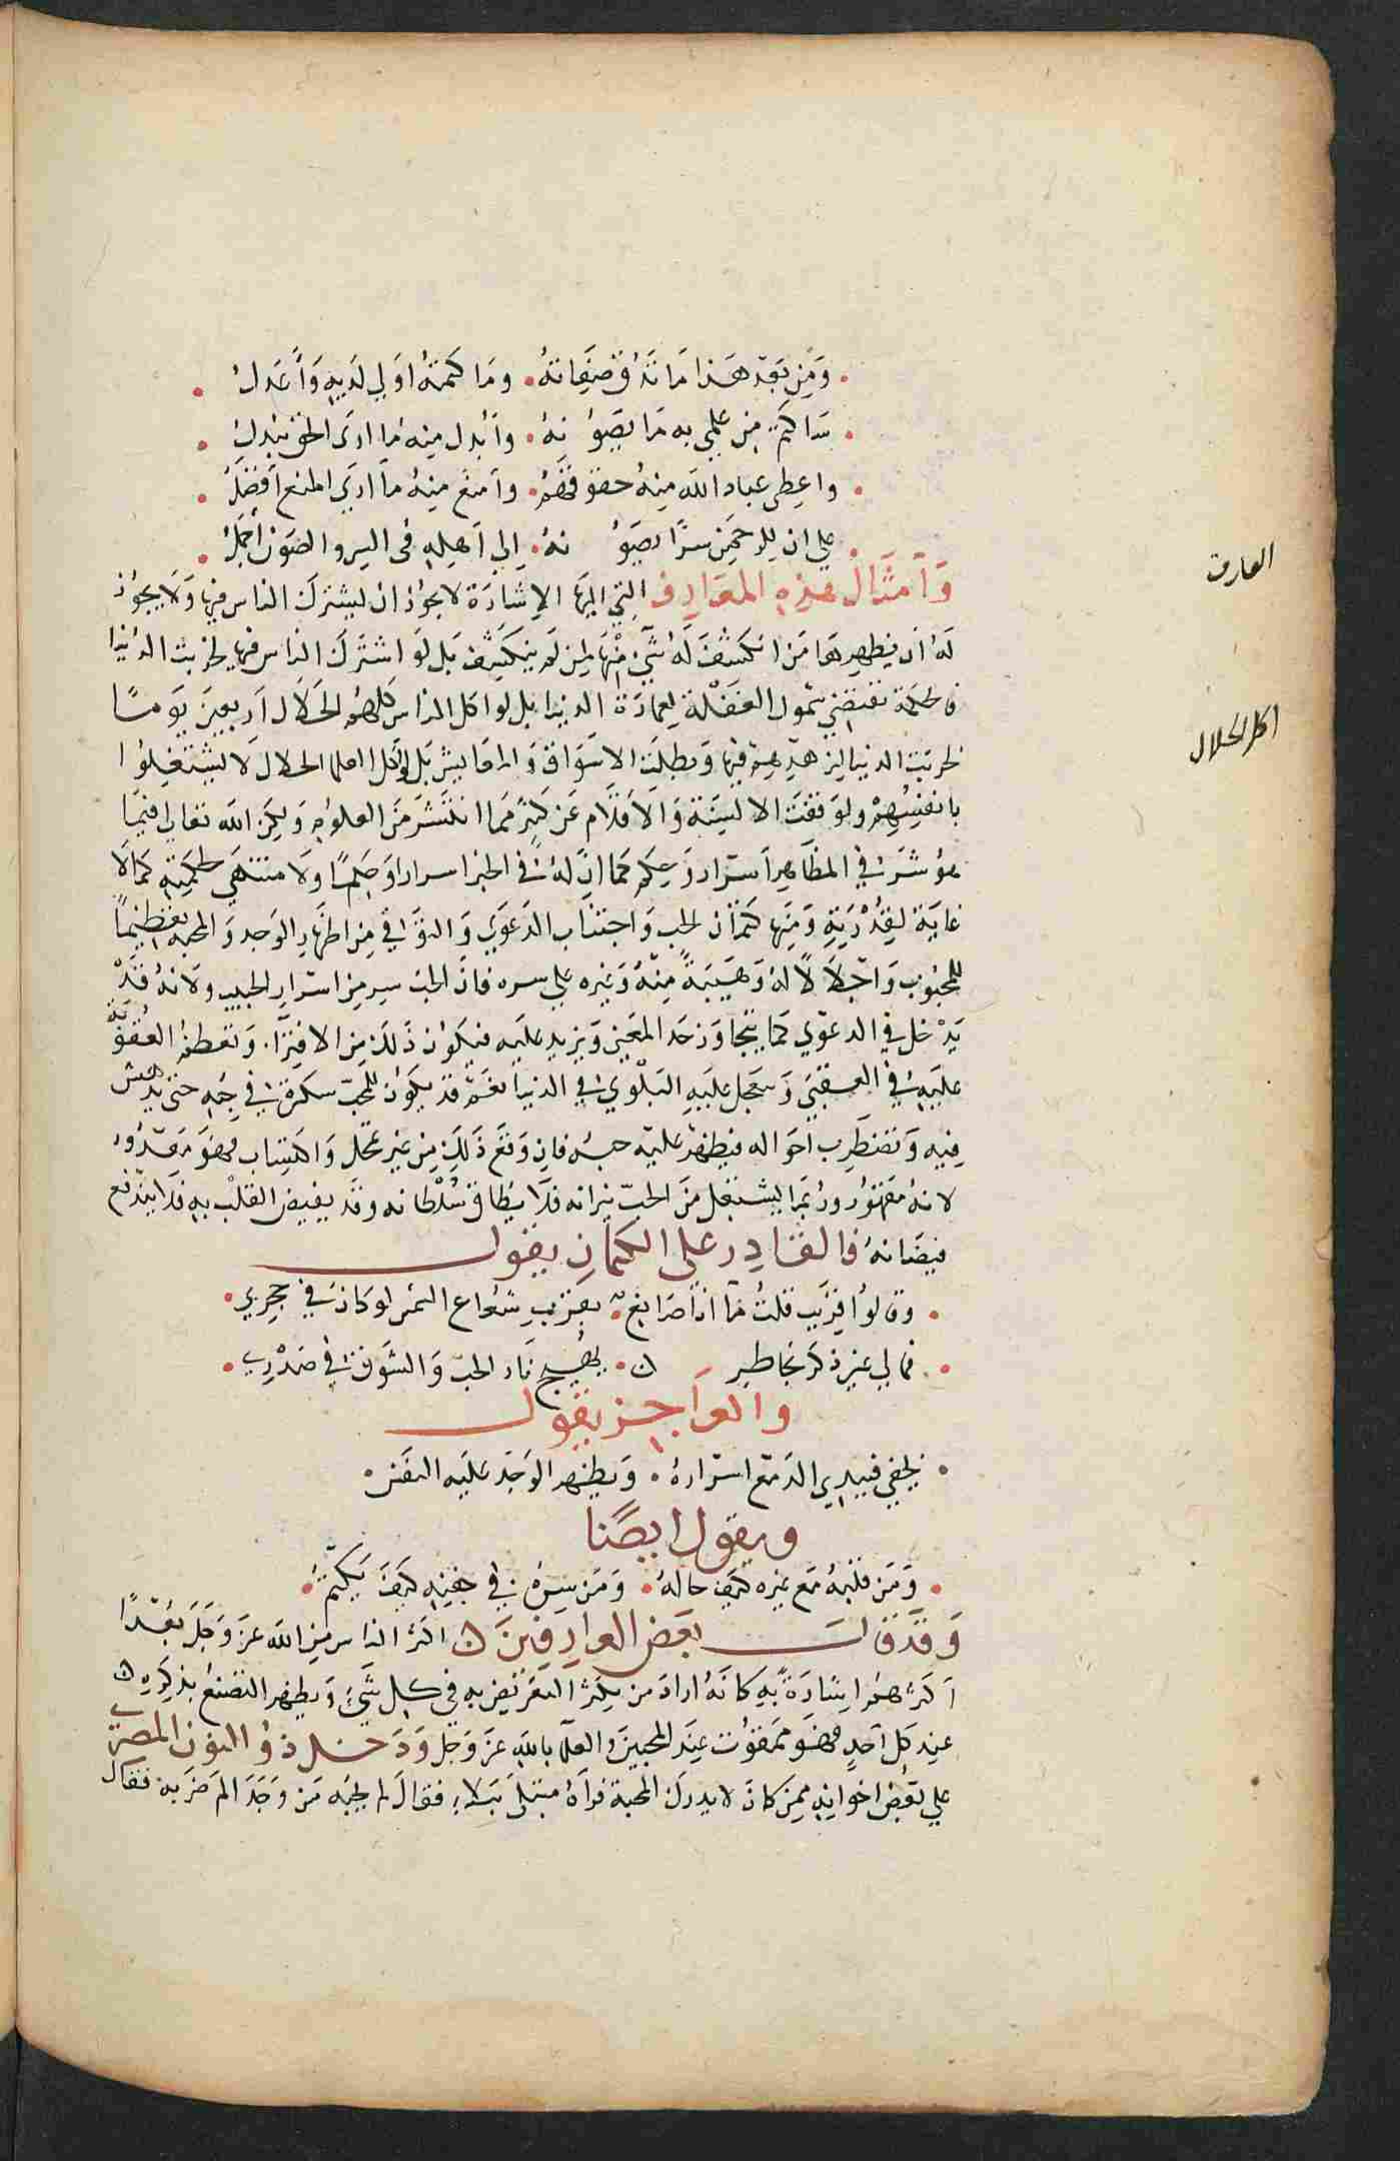 ومن بعد هذا ما تدق صفاته • وما كتمه اولي لديه واعدل •
• ساكتم من علمي به ما يصونه • وابدل منه ما اري الحق يبدل •
• واعطي عباد الله منه حقوقهم • وامنع منه ما اري المنع افضل •
• علي ان للرحمن سرا يصونه • الي اهله في السر والصون اجمل •
وامثال هذه المعارف التي اليها الاشارة لا يجوز ان يشترك الناس فيها ولا يجوز
العارف
له ان يظهرها من انكشف له شي منها لمن لم ينكشف بل لو اشترك الناس فيها لخربت الدنيا
فالحكمة تقتضي شمول الغفلة لعمارة الدنيا بل لو اكل الناس كلهم الحلال اربعين يوما
اكل الحلال
لخربت الدنيا لزهدهم فيها وبطلت الاسواق والمعايش بل لو اكل العلما الحلال لاشتغلوا
بانفسهم ولوقفت الالسنة والاقلام عن كثير مما انتشر من العلوم ولكن الله تعالي فيما
هو شر في الظاهر اسرار وحكم كما ان له في الخير اسرارا وحكما ولا منتهي لحكمته كما لا
غاية لقدرته ومنها كتمان الحب واجتناب الدعوي والتوقي من اظهار الوجد والمحبة تعظيما
للمحبوب واجلالا له وهيبة منه وغيرة علي سره فان الحب سر من اسرار الحبيب ولانه قد
يدخل في الدعوي كما يتجاوز حد المعني ويزيد عليه فيكون ذلك من الافترا وتعظم العقوبة
عليه في العقبي وتعجل عليه البلوي في الدنيا نعم قد يكون للمحب سكرة في حبه حتي يدهش
فيه وتضطرب احواله فيظهر عليه حبه فان وقع ذلك من غير تمحل واكتساب فهو معذور
لانه مقهور وربما يشتعل من الحب نيرانه فلا يطاق سلطانه وقد يفيض القلب به فلا يندفع
فيضانه فالقادر علي الكتمان يقول
• وقالوا قريب قلت ما انا صانع • بقرب شعاع الشمس لو كان في حجري •
• فمالي غير ذكر بخاطر ن • يهيج نار الحب والشوق في صدري •
والعاجز يقول
• يخفي فيبدي الدمع اسراره • ويظهر الوجد عليه النفس •
ويقول ايضا
• ومن قلبه مع غيره كيف حاله • ومن سره في جفنه كيف يكتم •
وقد قال بعض العارفين ن اكثر الناس من الله عز وجل بعدا
اكثرهم اشارة به كانه اراد من يكثر التعريض به في كل شي ويظهر التصنع بذكره ن
عند كل احد فهو ممقوت عند المحبين والعلما بالله عز وجل ودخل ذو النون المصري
علي بعض اخوانه ممن كان لا يدرك المحبة فرآه مبتلي ببلاء فقال لم يحبه من وجد الم ضربه فقال